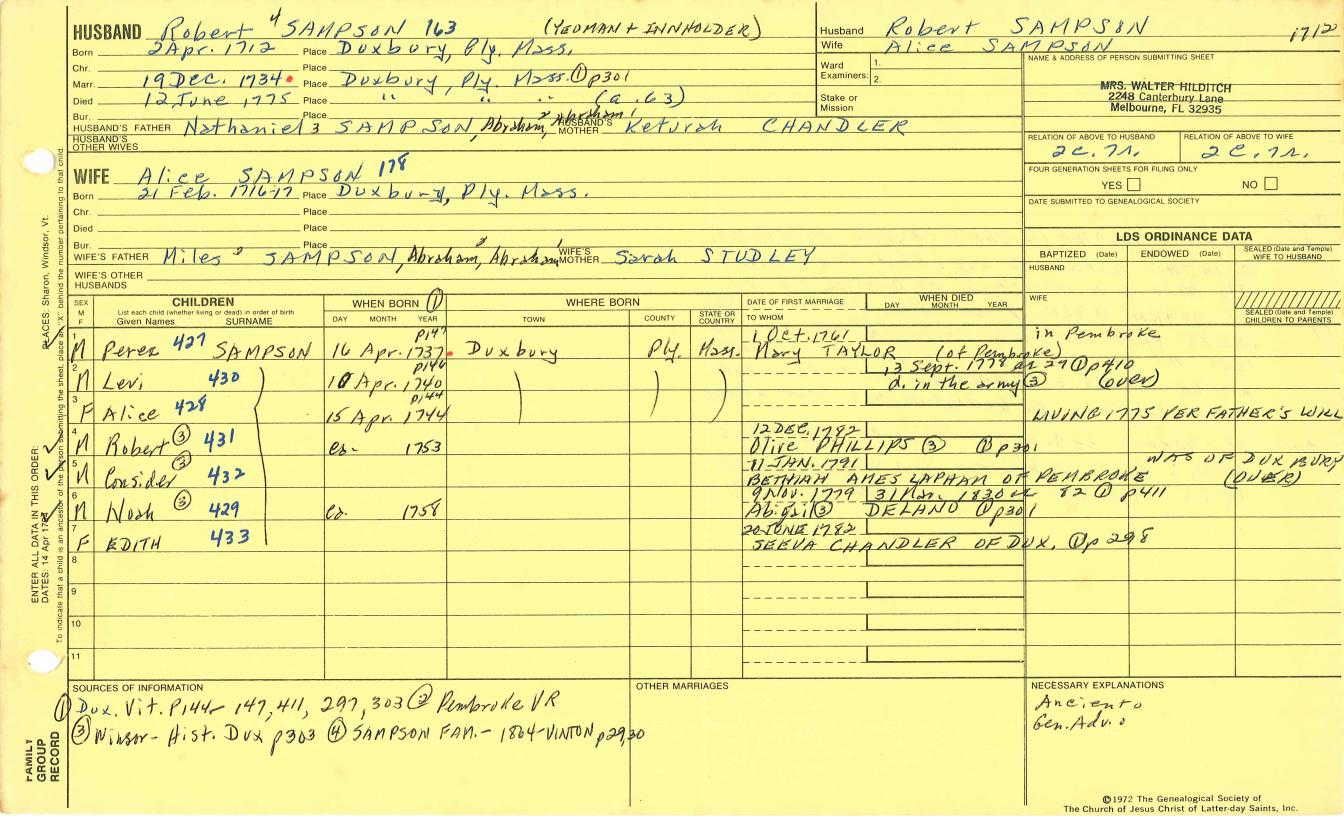 HUSBAND Robert 4 SAMPSON 163 (YEOMAN + INNHOLDER)
Born 2 Apr. 1712 Place Duxbury, Ply. Mass.
Chr. Place
Marr. 19 Dec. 1734 Place Duxbury, Ply. Mass. ① p301
Died 12 June 1775 Place " " " (a. 63)
Bur. Place
HUSBAND'S FATHER Nathaniel 3 SAMPSON, Abraham 2, Abraham 1 HUSBAND'S MOTHER Keturah CHANDLER
HUSBAND'S OTHER WIVES
Husband Robert SAMPSON 1712
Wife Alice SAMPSON
Ward Examiners: 1.
2.
Stake or Mission
NAME & ADDRESS OF PERSON SUBMITTING SHEET
MRS. WALTER HILDITCH
2248 Canterbury Lane
Melbourne, FL 32935
RELATION OF ABOVE TO HUSBAND RELATION OF ABOVE TO WIFE
2 c. 7r. 2 c. 7r.
FOUR GENERATION SHEETS FOR FILING ONLY
YES NO
DATE SUBMITTED TO GENEALOGICAL SOCIETY
WIFE Alice SAMPSON 178
Born 21 Feb. 1716-17 Place Duxbury, Ply. Mass.
Chr. Place
Died Place
Bur. Place
WIFE'S FATHER Miles 3 SAMPSON, Abraham 2, Abraham 1 WIFE'S MOTHER Sarah STUDLEY
WIFE'S OTHER HUSBANDS
LDS ORDINANCE DATA
BAPTIZED (Date) ENDOWED (Date) SEALED (Date and Temple) WIFE TO HUSBAND
HUSBAND
WIFE
SEALED (Date and Temple) CHILDREN TO PARENTS
SEX M F CHILDREN WHEN BORN ① WHERE BORN DATE OF FIRST MARRIAGE WHEN DIED
List each child (whether living or dead) in order of birth
Given Names SURNAME DAY MONTH YEAR TOWN COUNTY STATE OR COUNTRY TO WHOM DAY MONTH YEAR
p147 1 Oct. 1761 in Pembroke
1 M Perez 427 SAMPSON 16 Apr. 1737 Duxbury Ply. Mass. Mary TAYLOR (of Pembroke)
p146 13 Sept. 1778 ae 27 ① p410
2 M Levi 430 10 Apr. 1740 d. in the army ③ (over)
p144
3 F Alice 428 15 Apr. 1744 LIVING 1775 PER FATHER'S WILL
12 DEC. 1782
4 M Robert ③ 431 ca. 1753 Olive PHILLIPS ③ ① p301
11 JAN. 1791 WAS OF DUXBURY
5 M Consider ③ 432 BETHIAH AMES LAPHAM OF PEMBROKE (OVER)
9 Nov. 1779 31 Mar. 1830 ae 82 ① p411
6 M Noah ③ 429 ca. 1758 Abigail ③ DELANO ① p301
20 JUNE 1782
7 F EDITH 433 SEEVA CHANDLER OF DUX. ① p298
8
9
10
11
SOURCES OF INFORMATION
① Dux. Vit. P144- 147, 411, 297, 303 ② Pembroke VR
③ Winsor- Hist. Dux p303 ④ SAMPSON FAM.- 1864-VINTON p29,30
OTHER MARRIAGES
NECESSARY EXPLANATIONS
Gen. Adv.
©1972 The Genealogical Society of
The Church of Jesus Christ of Latter-day Saints, Inc.
ENTER ALL DATA IN THIS ORDER:
PLACES: Sharon, Windsor, Vt.
FAMILY GROUP RECORD